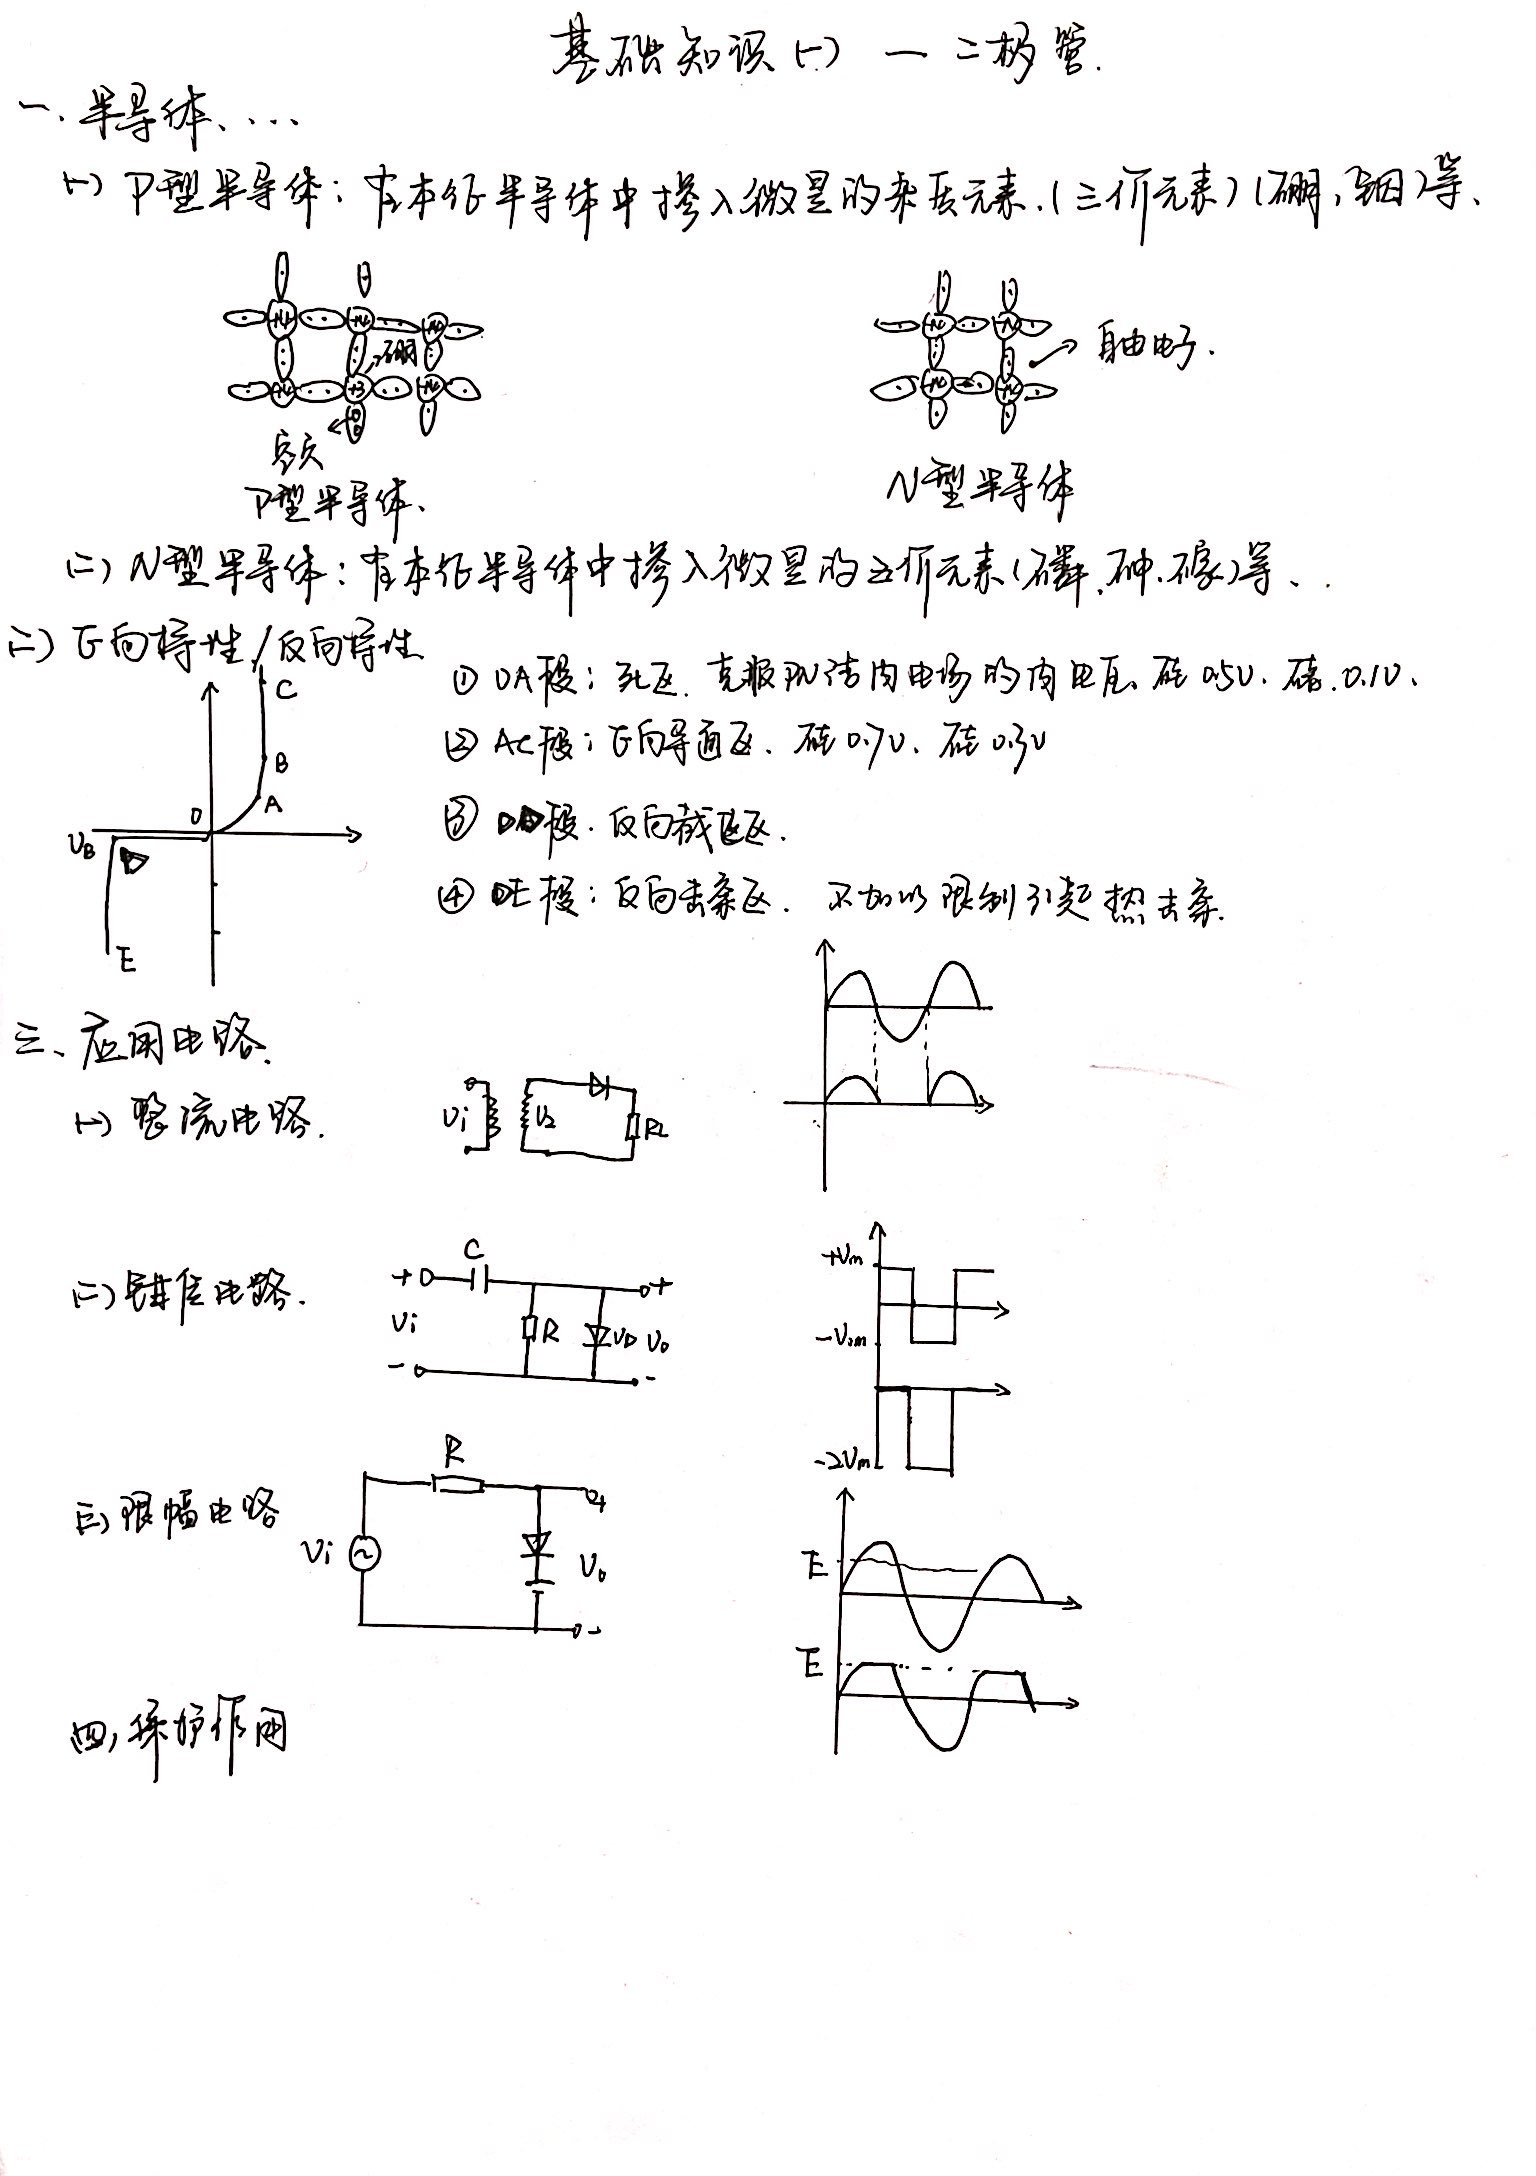 基础知识(一) — 二极管.
一、半导体、....
(一) P型半导体: 在本征半导体中掺入微量的杂质元素.(三价元素)(硼,铟)等、
+4 +4 +4
硼
+4 +3 +4
空穴
P型半导体、
+4 +4
自由电子.
+4 +4
N型半导体
(二) N型半导体: 在本征半导体中掺入微量的五价元素(磷.砷.)等、..
二) 正向特性/反向特性
C
B
A
O
UB
D
E
① OA段: 死区. 克服PN结内电场的内电压、硅 0.5V. 锗.0.1V、
② AC段: 正向导通区. 硅 0.7V、硅 0.3V
③ OD段. 反向截止区.
④ DE段: 反向击穿区. 不加以限制引起热击穿.
三、应用电路.
(一) 整流电路.
Ui U2 RL
(二) 钳位电路.
+ C +
Ui R VD Uo
- -
+Um
-Um
-2Um
(三) 限幅电路
R
+
Ui ~ Uo
-
E
E
四, 保护作用